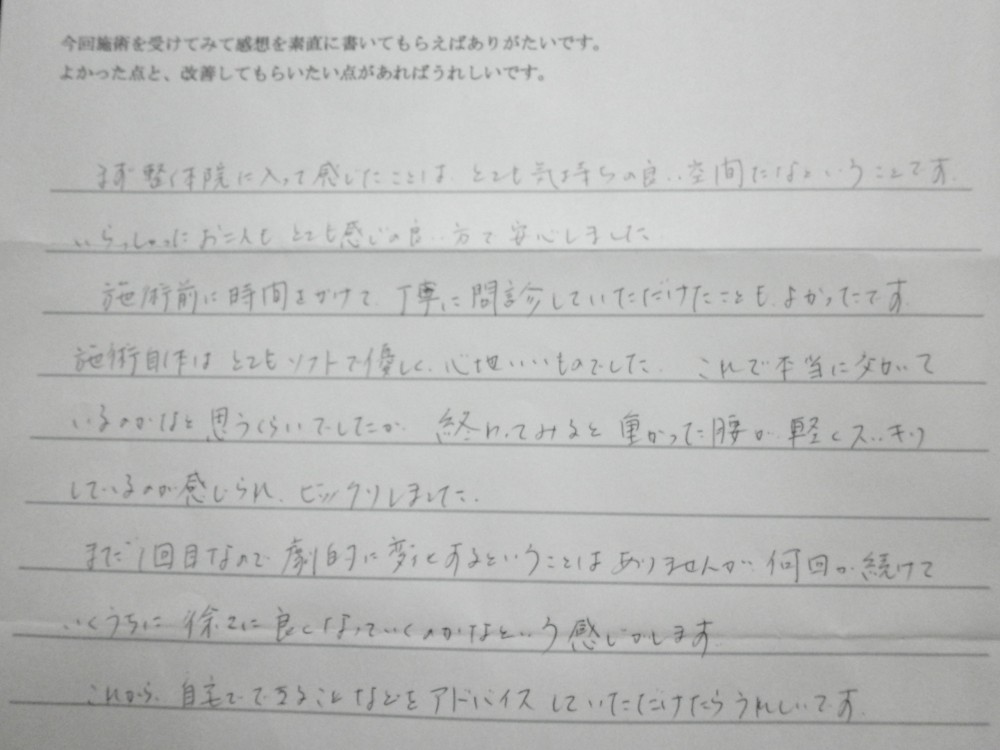 今回施術を受けてみて感想を素直に書いてもらえばありがたいです。
よかった点と、改善してもらいたい点があればうれしいです。
まず整体院に入って感じたことは、とても気持ちの良い空間だなということです。
いらっしゃったお二人もとても感じの良い方で安心しました。
施術前に時間をかけて、丁寧に問診していただけたことも、よかったです。
施術自体はとてもソフトで優しく、心地いいものでした。これで本当に効いて
いるのかなと思うくらいでしたが、終わってみると重かった腰が軽くスッキリ
しているのが感じられ、ビックリしました。
まだ1回目なので劇的に変化するということはありませんが、何回か続けて
いくうちに徐々に良くなっていくのかなという感じがします。
これから、自宅でできることなどをアドバイスしていただけたらうれしいです。